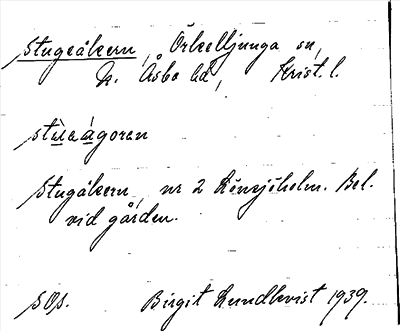 Stugeåkern, Örkelljunga sn,
N. Åsbo hd, Krist. l.
stùeaágoran
Stugåkern, nr 2 Rönsjöholm. Bel.
vid gården.
sOs. Birgit Lundkvist 1939.